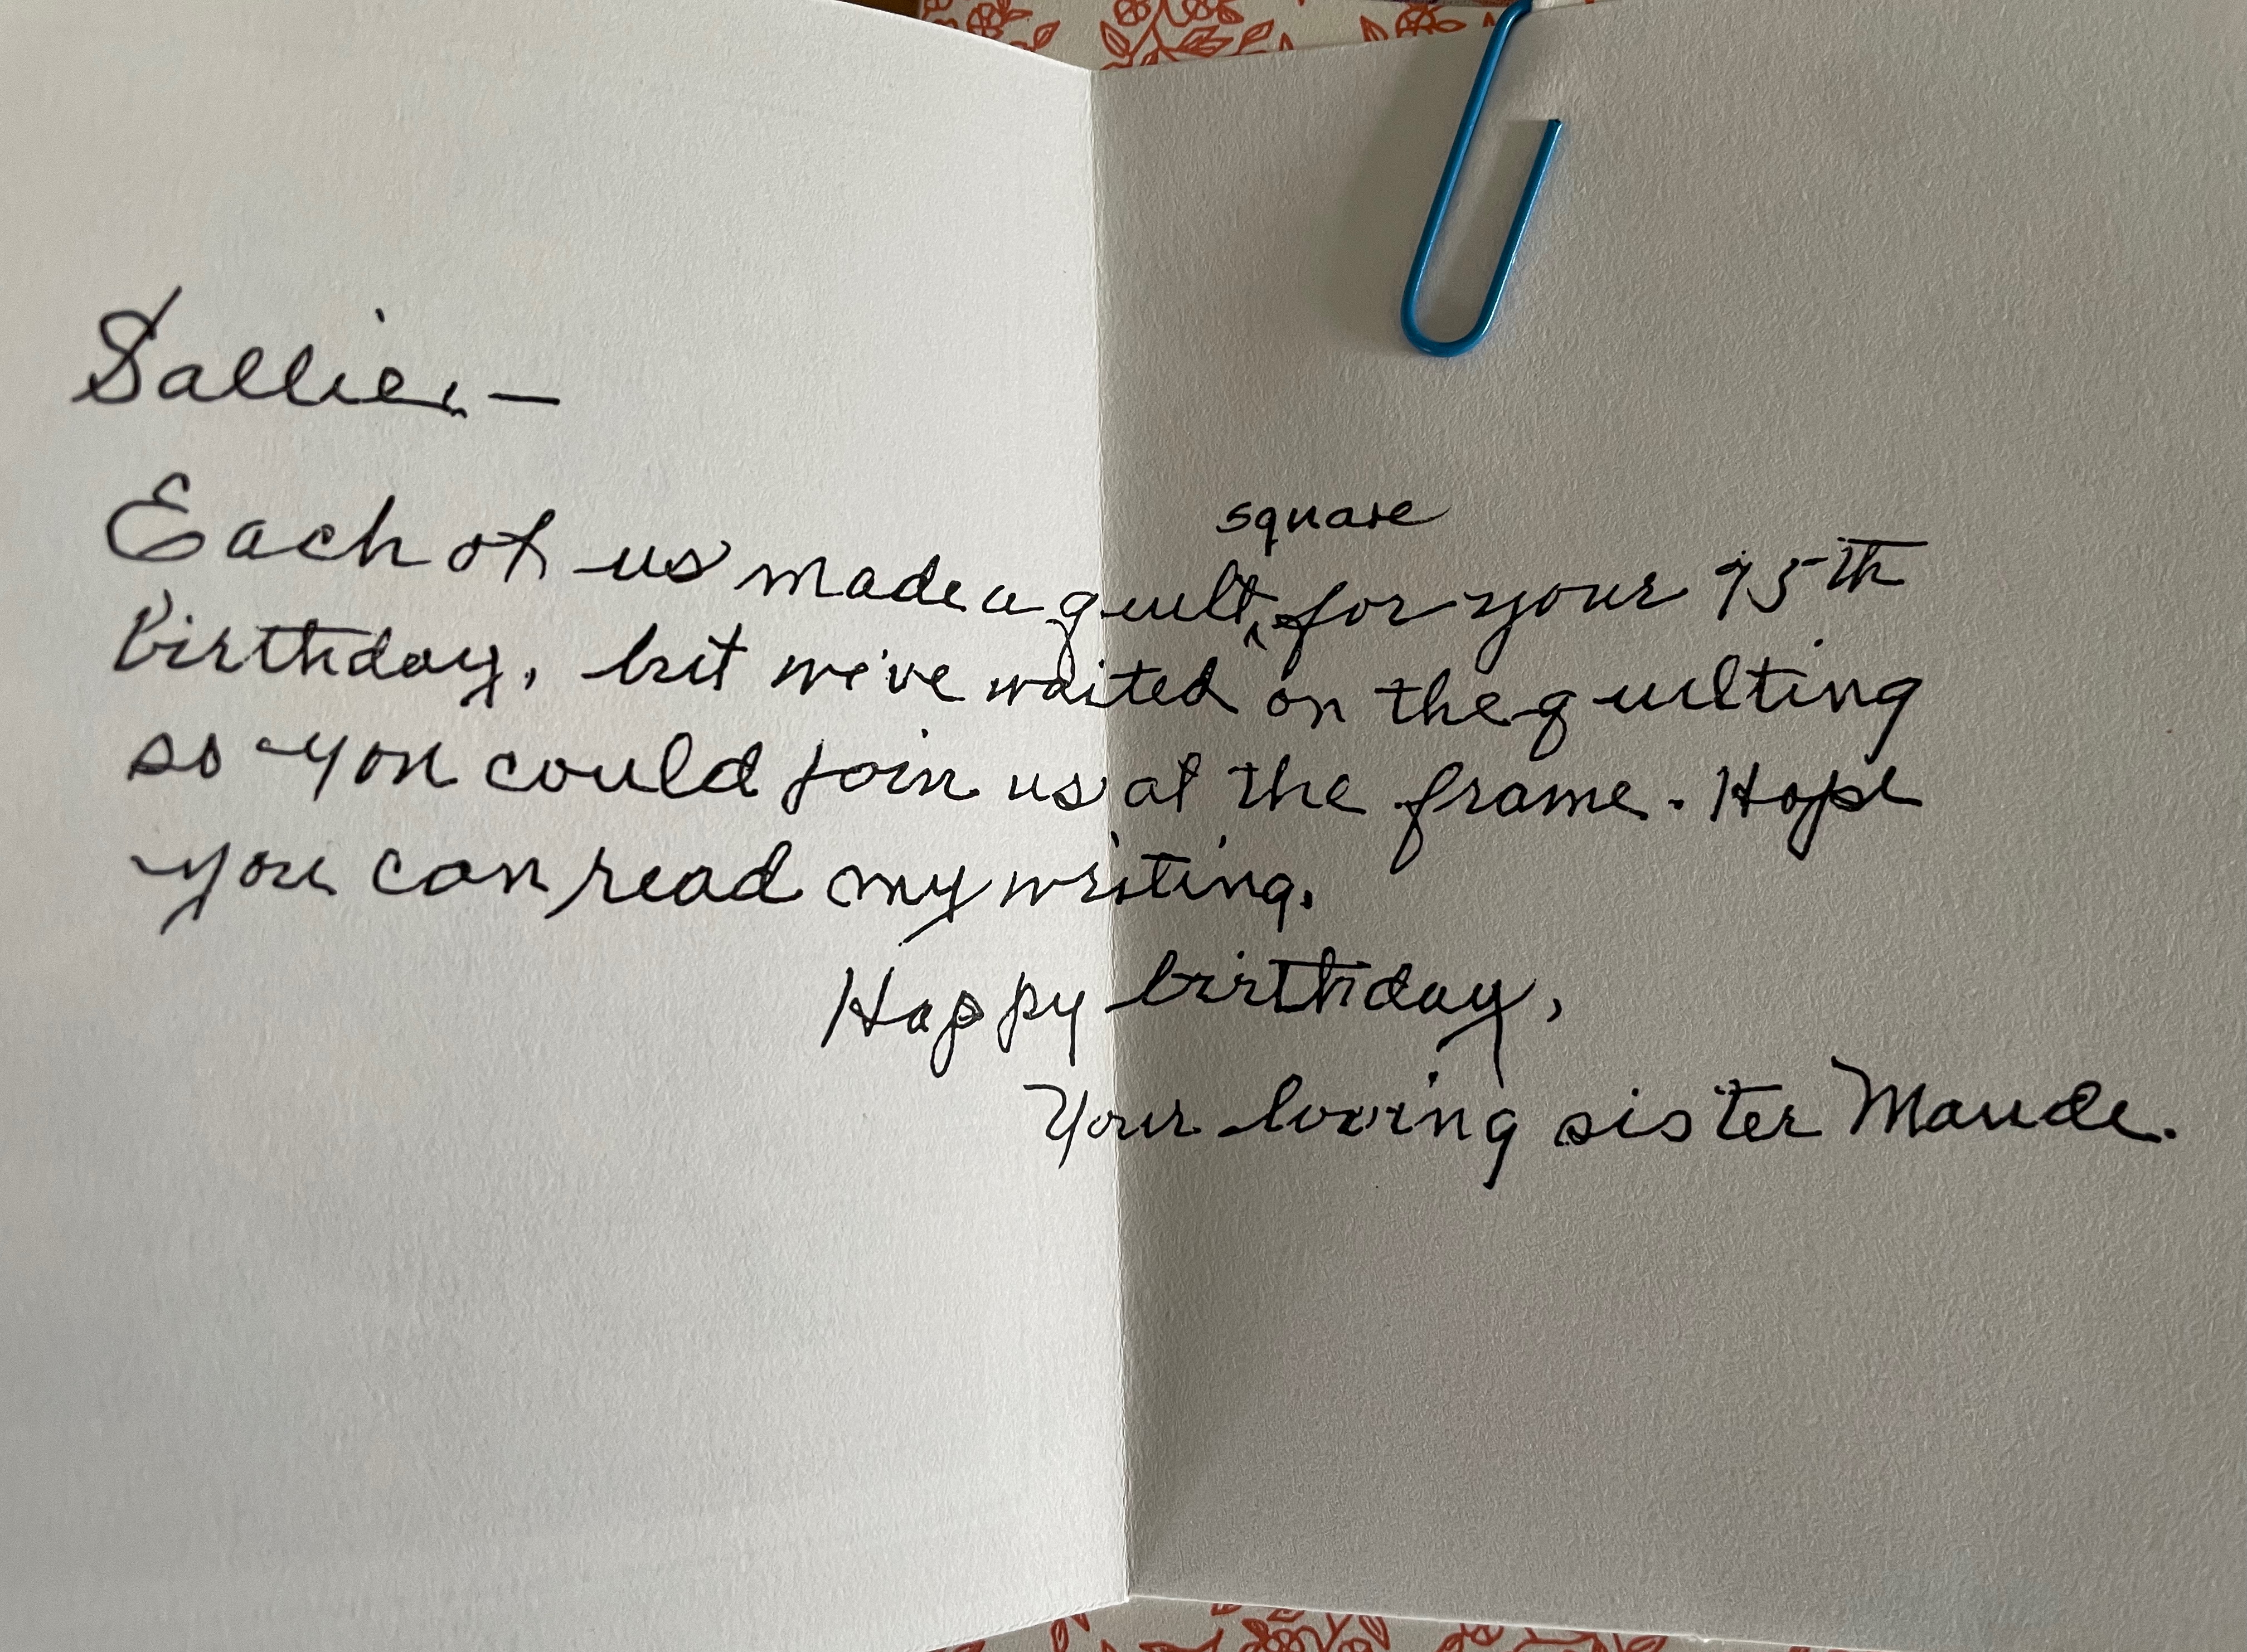 Sallie, —
Each of us made a quilt square for your 95th
birthday, but we've waited on the quilting
so you could join us at the frame. Hope
you can read my writing.
Happy birthday,
Your loving sister Maude.